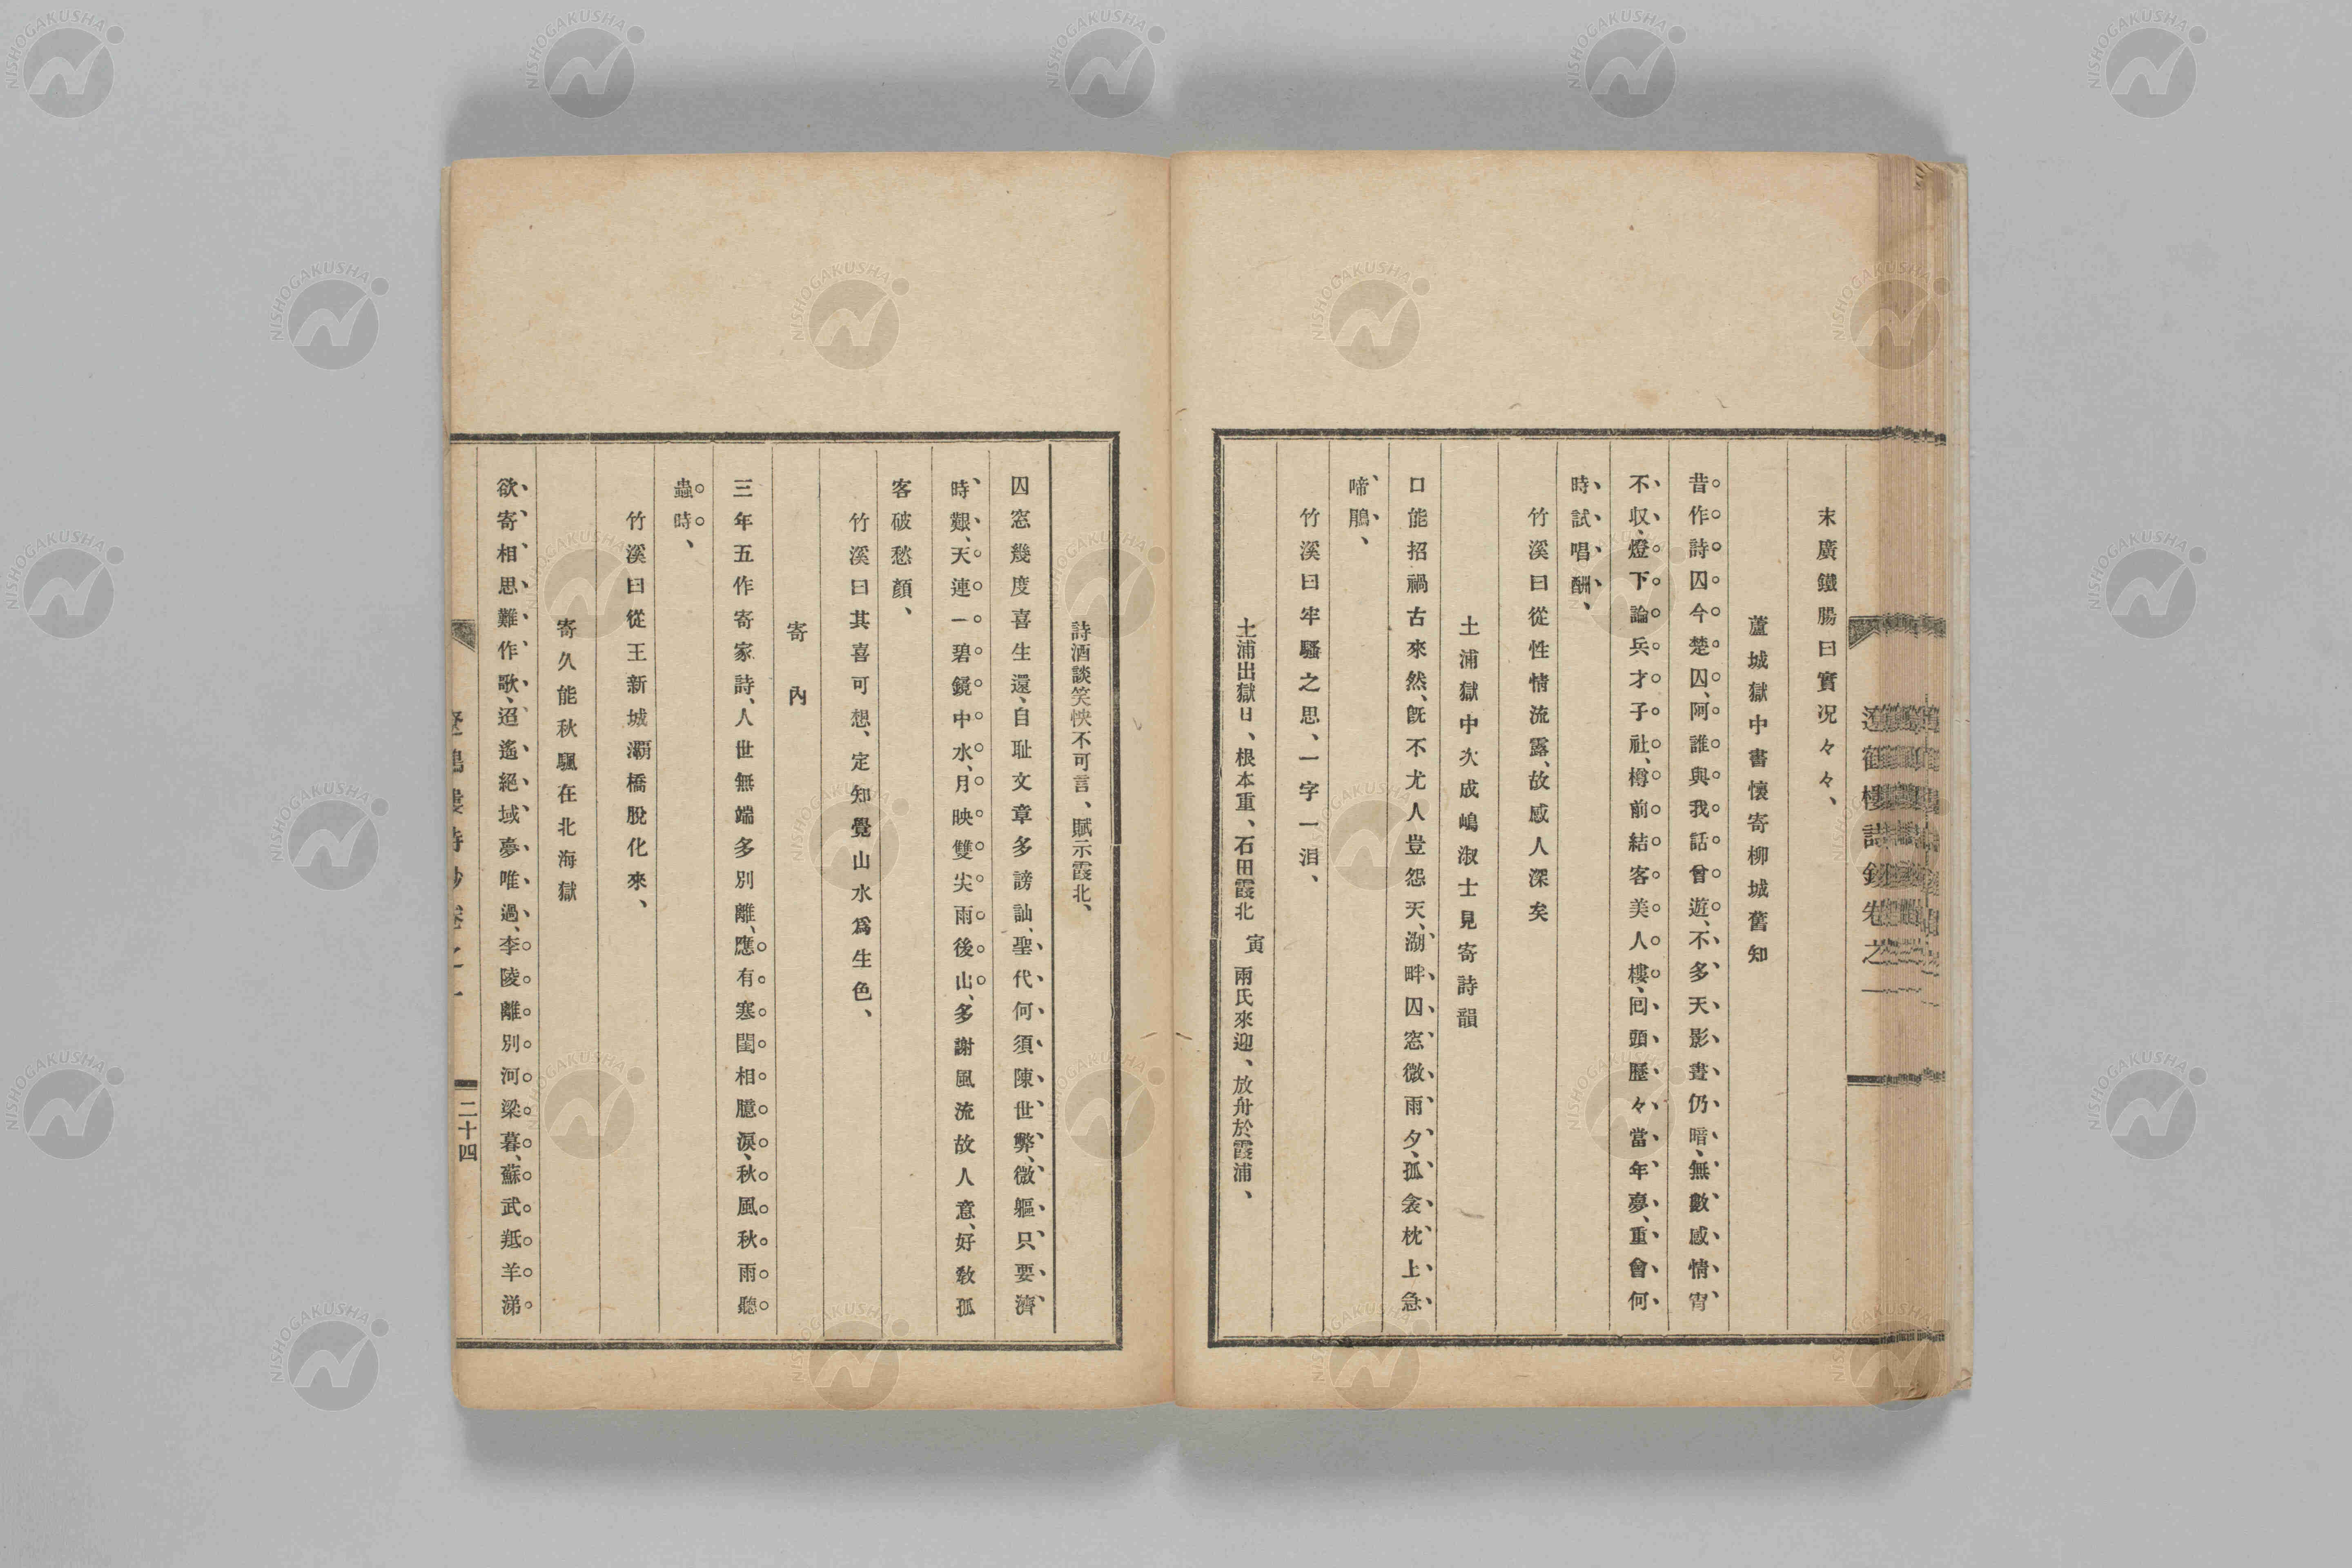 末廣鐵腸曰實况々々、
蘆城獄中書懷寄柳城舊知
昔作詩囚今楚囚、阿誰與我話曾遊、不多天影晝仍暗、無數感情宵
不収、燈下論兵才子社、樽前結客美人樓、囘頭歷々當年夢、重會何
時試唱酬、
竹溪曰從性情流露、故感人深矣
土浦獄中次成嶋淑士見寄詩韻
口能招禍古來然、旣不尤人豈怨天、湖畔囚窓微雨夕、孤衾枕上急
啼鵑、
竹溪曰牢騷之思、一字一淚、
土浦出獄日、根本重、石田霞北 寅 兩氏來迎、放舟於霞浦、
詩酒談笑怏不可言、賦示霞北、
囚窓幾度喜生還、自耻文章多謗訕、聖代何須陳世弊、微軀只要濟
時艱、天連一碧鏡中水、月映雙尖雨後山、多謝風流故人意、好敎孤
客破愁顏、
竹溪曰其喜可想、定知覺山水爲生色、
寄內
三年五作寄家詩、人世無端多別離、應有寒閨相臆淚、秋風秋雨聽
蟲時、
竹溪曰從王新城灞橋脫化來、
寄久能秋颿在北海獄
欲寄相思難作歌、迢遙絕域夢唯過、李陵離別河梁暮、蘇武羝羊涕
二十四
NISHOGAKUSHA